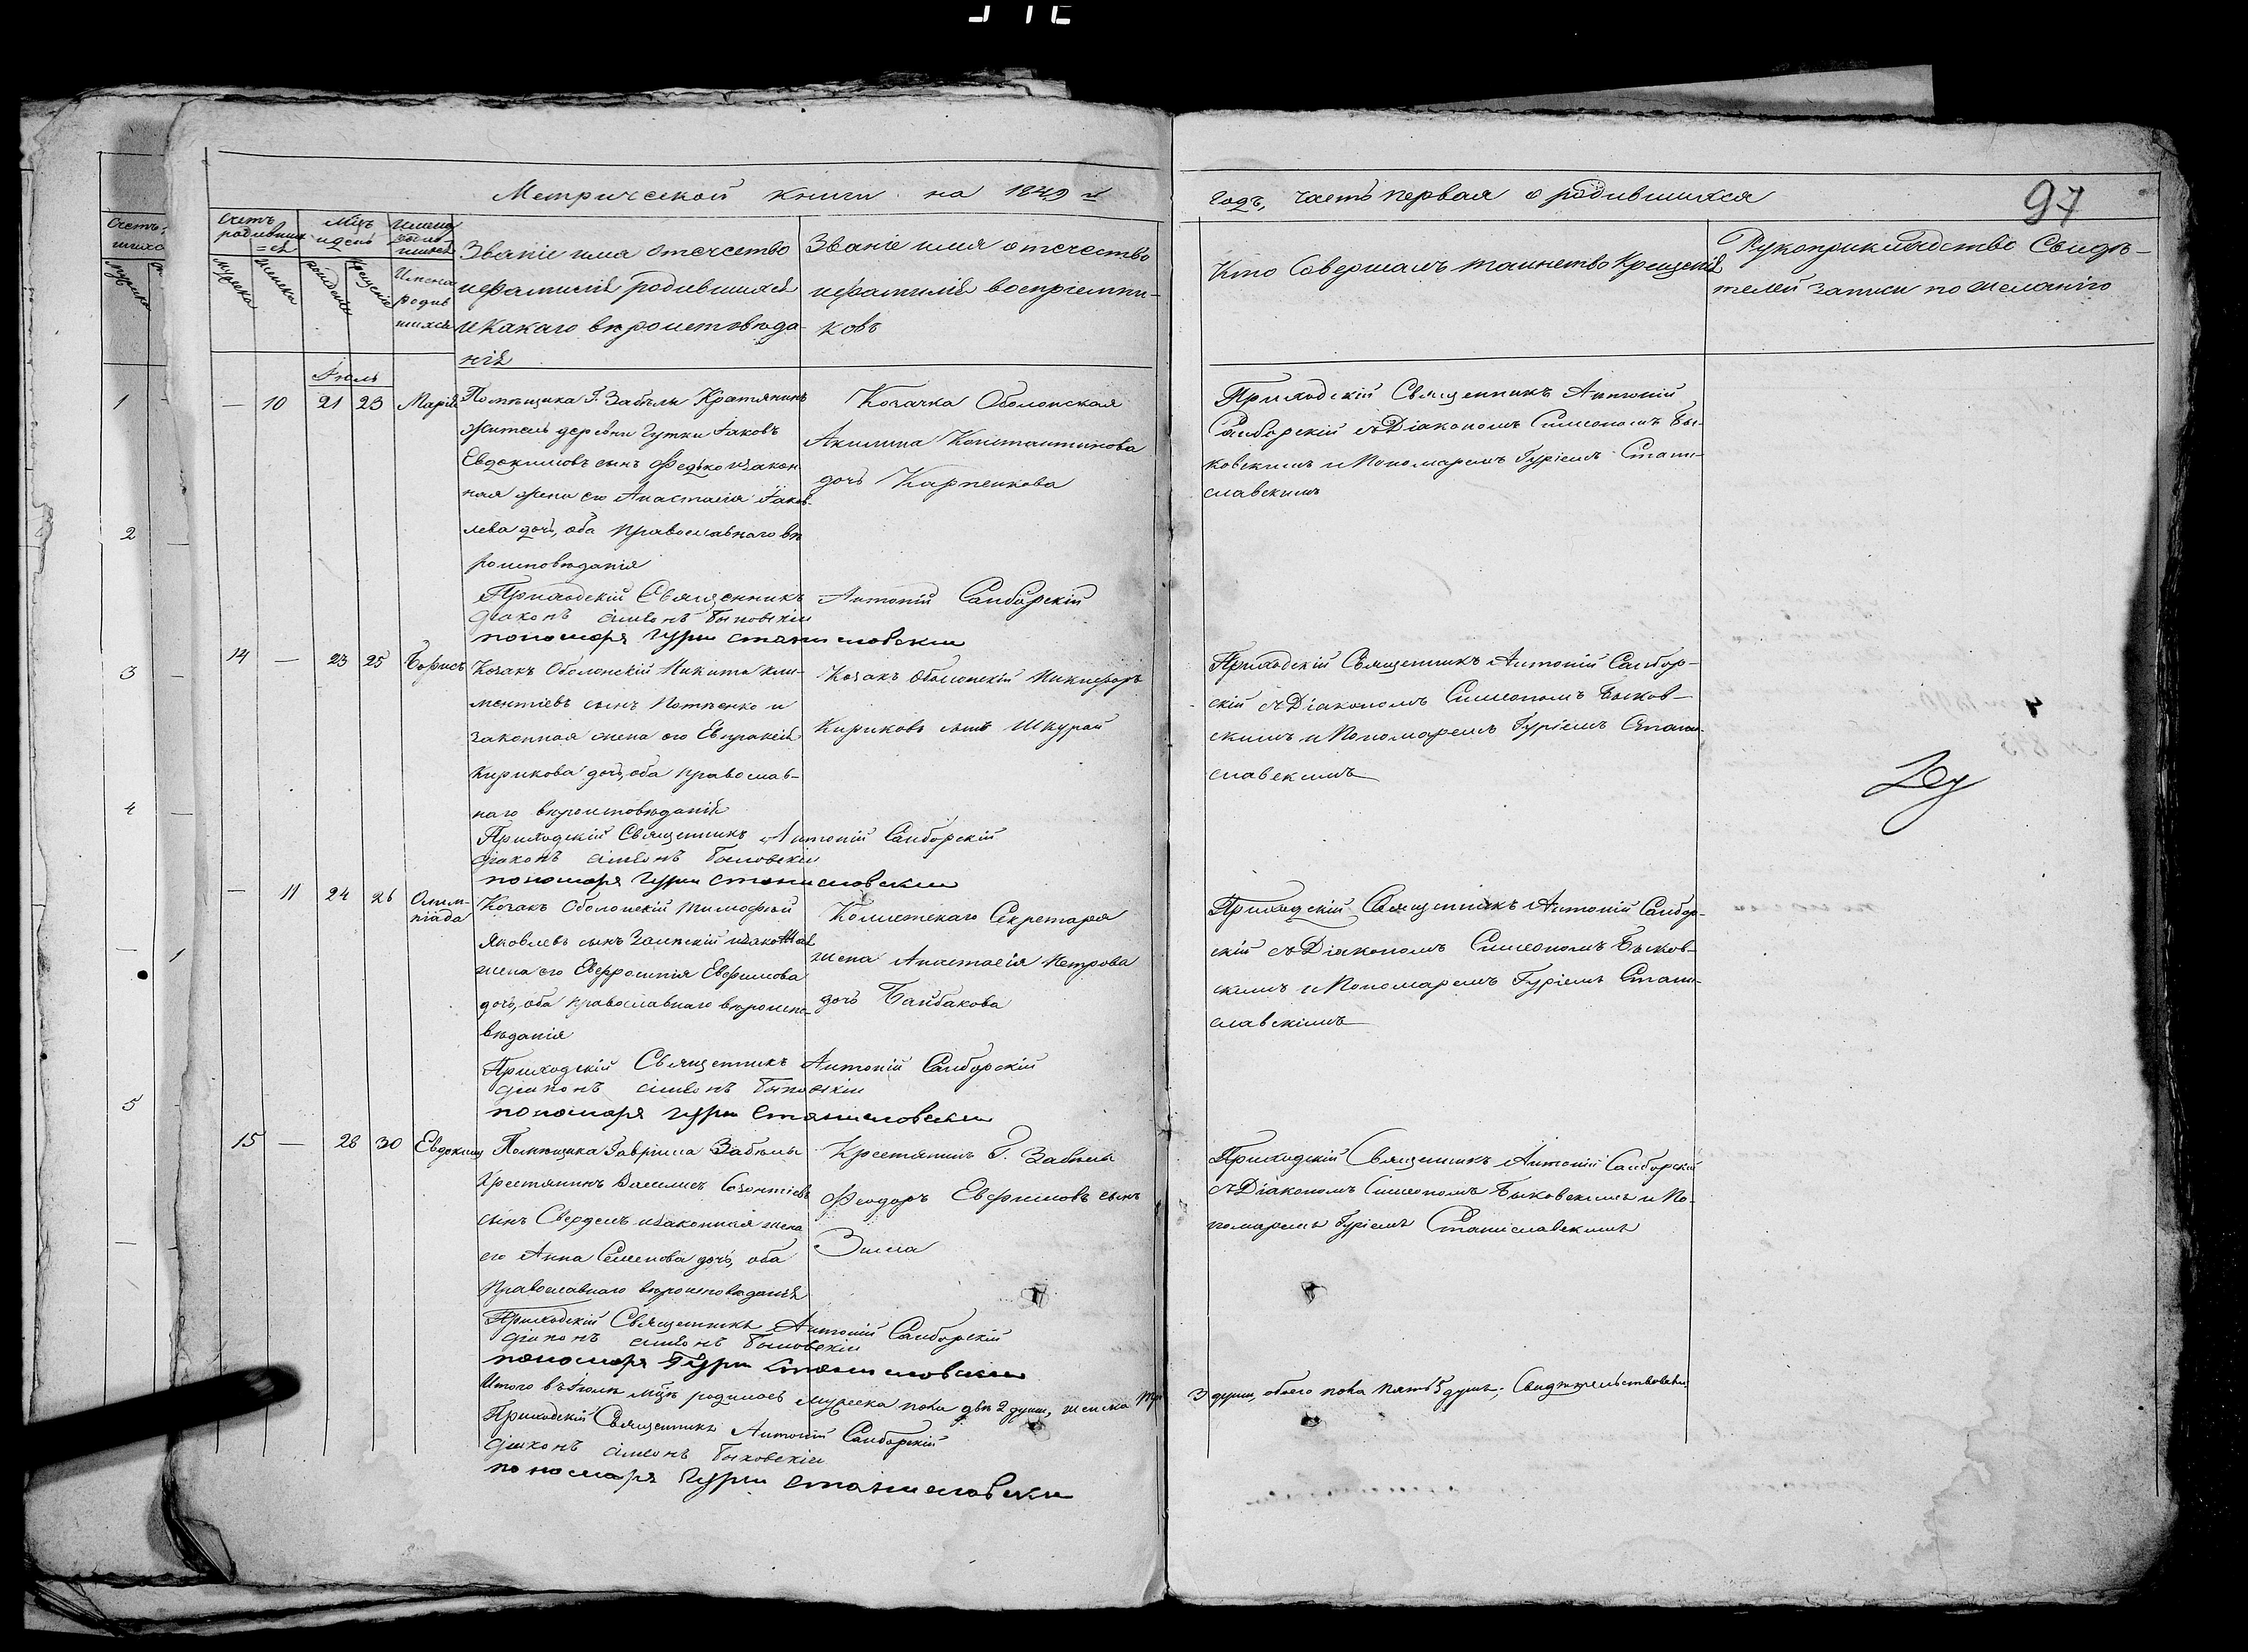 Метрической книги на 1849 й
годъ, часть первая о родившихся
97
Счетъ родившихся
Мцъ и день
Имена родившихся
мужеска
женска
рожденія
крещенія
Званіе имя отечество
и фамилія родившихся
и какаго вѣроисповѣда-
нія
Званіе имя отечество
и фамилія воспріемни-
ковъ
Кто совершалъ таинство крещенія
Рукоприкладство свидѣ-
телей записи по желанію
Іюль
— 10 21 23 Марія
Помѣщика Г. Забѣлы Кратянинъ
житель деревни Гутки Іаковъ
Евдокимовъ сынъ Федько и закон
ная жена его Анастасія Іаков
лева дочь, оба православнаго вѣ
роисповѣданія
Козачка Оболонская
Акилина Константинова
дочь Карпенкова
Приходскій Священникъ Антоній
Самборскій съ Діакономъ Симеономъ Бы-
ковскимъ и Пономаремъ Гуріемъ Стани-
славскимъ
Приходскій Священникъ Антоній Самборскій
діаконъ сімеонъ быковскіи
пономаръ гури станиславски
14 — 23 25 Борисъ
Козакъ Оболонскій Никита Кли-
ментіевъ сынъ Потѣенко и
законная жена его Евпраксія
Кирикова дочь, оба православ-
наго вѣроисповѣданія
Козакъ Оболонскій Никифоръ
Кириковъ сынъ Шкурай
Приходскій Священникъ Антоній Самбор-
скій съ Діакономъ Симеономъ Быков-
скимъ и Пономаремъ Гуріемъ Стани-
славскимъ
Приходскій Священникъ Антоній Самборскій
діаконъ сімеонъ быковскіи
пономаръ гури станиславски
— 11 24 26 Олим-
піада
Козакъ Оболонскій Тимофѣй
Яковлевъ сынъ Заипскій и законная
жена его Евфросинія Евфимова
дочь, оба православнаго вѣроиспо-
вѣданія
Колежскаго Секретаря
жена Анастасія Петрова
дочь Байбакова
Приходскій Священникъ Антоній Самбор-
скій съ Діакономъ Симеономъ Быков-
скимъ и Пономаремъ Гуріемъ Стани-
славскимъ
Приходскій Священникъ Антоній Самборскій
діаконъ сімеонъ быковскіи
пономаръ гури станиславски
15 — 28 30 Евдокимъ
Помѣщика Гавріила Забѣлы
Крестянинъ Василій Созонтіевъ
сынъ Свердель и законная жена
его Анна Семенова дочь, оба
православнаго вѣроисповѣданія
Крестянинъ Г. Забѣлы
Феодоръ Евфимовъ сынъ
Зима
Приходскій Священникъ Антоній Самборскій
съ Діакономъ Симеономъ Быковскимъ и По-
номаремъ Гуріемъ Станиславскимъ
Приходскій Священникъ Антоній Самборскій
діаконъ сімеонъ быковскіи
пономаръ Гури станиславски
Итого въ Іюлѣ мцѣ родилось мужеска пола двѣ 2 души, женска три 3 души, обоего пола пять 5 душъ; свидѣтельствовали:
Приходскій Священникъ Антоній Самборскій
діаконъ сімеонъ быковскіи
пономаръ гури станиславски